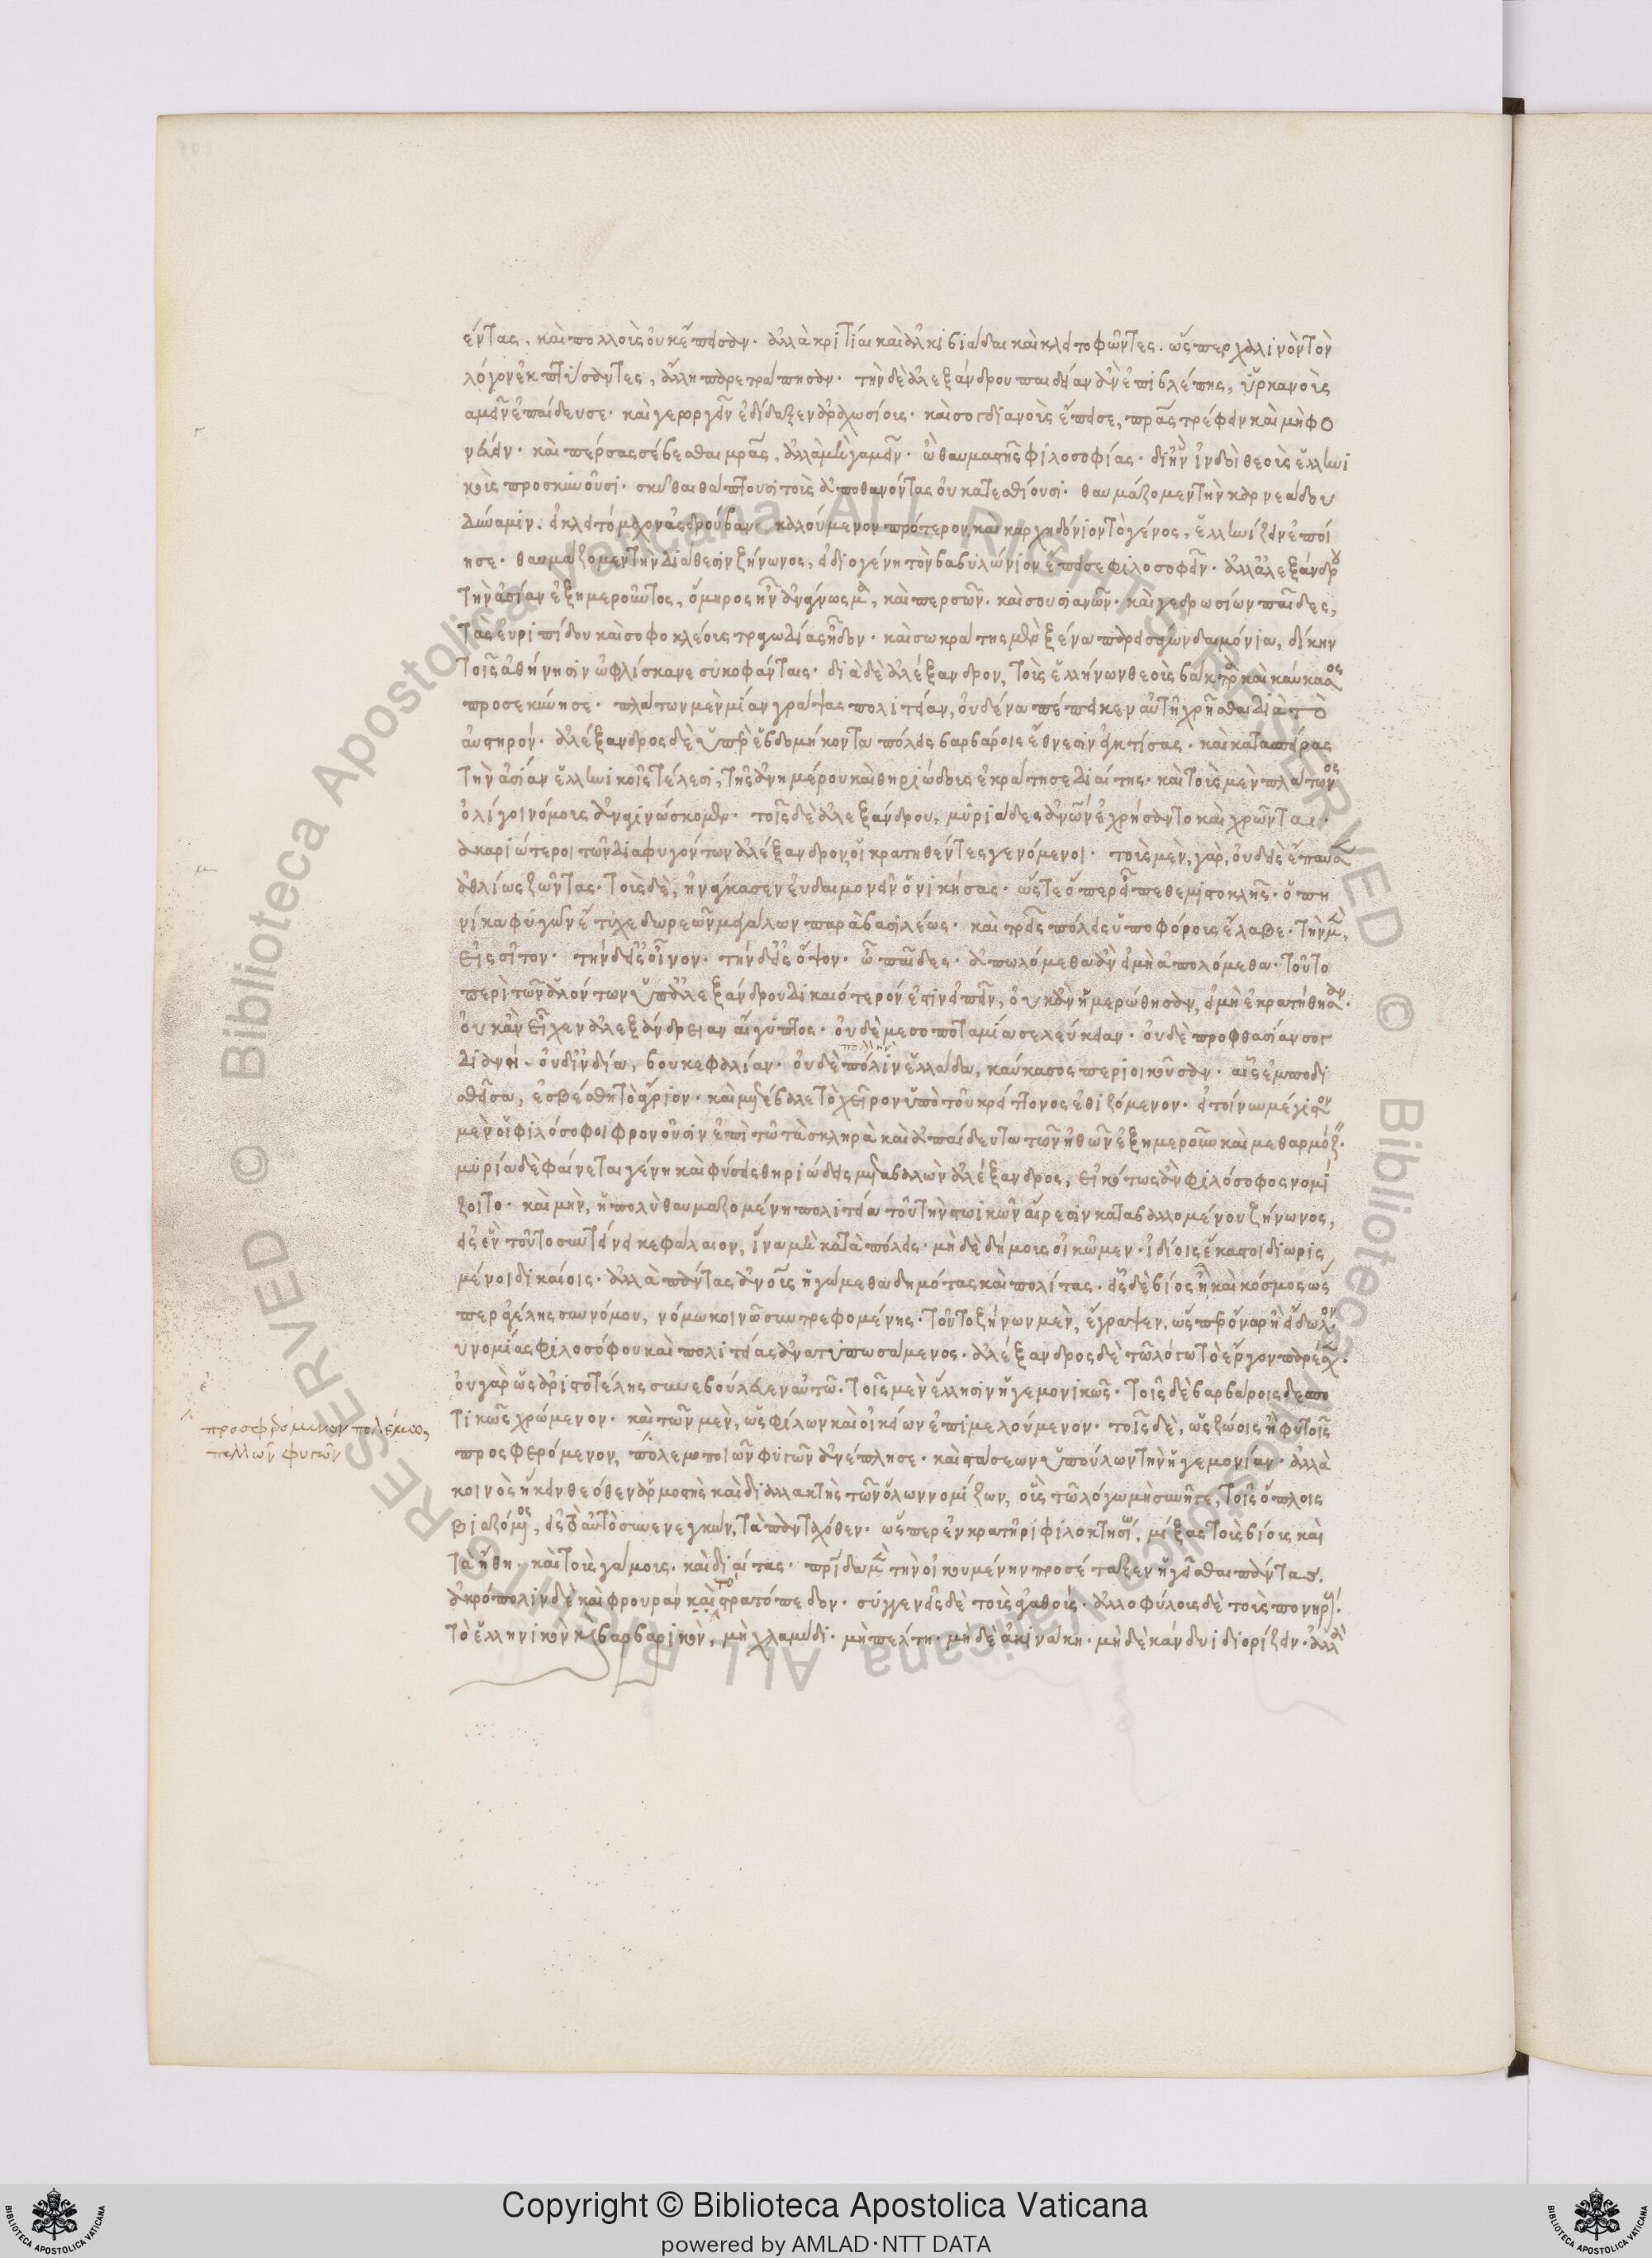 έντας, καὶ πολλοὺς οὐκ ἔπεισαν. ἀλλὰ κριτίαι καὶ ἀλκιβιάδαι καὶ κλειτοφῶντες. ὥσπερ χαλινὸν τὸν
λόγον ἐκπτύσαντες, ἄλλη παρετράπησαν. τὴν δὲ ἀλεξάνδρου παιδείαν ἂν ἐπιβλέπης, ὑρκανοὺς
γαμεῖν ἐπαίδευσε. καὶ γεωργεῖν ἐδίδαξεν ἀραχωσίους. καὶ σογδιανοὺς ἔπεισε, πατέρας τρέφειν καὶ μὴ φο
νεύειν. καὶ πέρσας σέβεσθαι μητέρας, ἀλλὰ μὴ γαμεῖν. ὢ θαυμαστῆς φιλοσοφίας. δι' ἣν ἰνδοὶ θεοὺς ἑλληνι
κοὺς προσκυνοῦσι. σκύθαι θάπτουσι τοὺς ἀποθανόντας οὐ κατεσθίουσι. θαυμάζομεν τὴν καρνεάδου
δύναμιν. εἰ κλειτόμαχον ἀσδρούβαν καλούμενον πρότερον, καὶ καρχηδόνιον τὸ γένος, ἑλληνίζειν ἐποί
ησε. θαυμάζομεν τὴν διάθεσιν ζήνωνος, εἰ διογένη τὸν βαβυλώνιον ἔπεισε φιλοσοφεῖν. ἀλλ' ἀλεξάνδρου
τὴν ἀσίαν ἐξημεροῦντος, ὅμηρος ἦν ἀνάγνωσμα, καὶ περσῶν. καὶ σουσιανῶν. καὶ γεδρωσίων παῖδες,
τὰς εὐριπίδου καὶ σοφοκλέους τραγωδίας ᾖδον. καὶ σωκράτης μὲν ὡς ξένα παρεισάγων δαιμόνια, δίκην
τοῖς ἀθήνησιν ὠφλίσκανε συκοφάνταις. διὰ δὲ ἀλέξανδρον, τοὺς ἑλλήνων θεοὺς βάκτρα καὶ καύκασος
προσεκύνησε. πλάτων μὲν μίαν γράψας πολιτείαν, οὐδένα πέπεικεν αὐτῆ χρῆσθαι διὰ τὸ
αὐστηρόν. ἀλέξανδρος δὲ ὑπὲρ ἑβδομήκοντα πόλεις βαρβάροις ἔθνεσιν ἐγκτίσας. καὶ κατασπείρας
τὴν ἀσίαν ἑλληνικοῖς τέλεσι, τῆς ἀνημέρου καὶ θηριώδους ἐκράτησε διαίτης. καὶ τοὺς μὲν πλάτωνος
ὀλίγοι νόμους ἀναγινώσκομεν. τοῖς δὲ ἀλεξάνδρου, μυριάδες ἀνθρώπων ἐχρήσαντο καὶ χρῶνται.
μακαριώτεροι τῶν διαφυγόντων ἀλέξανδρον, οἱ κρατηθέντες γενόμενοι. τοὺς μὲν, γὰρ, οὐδεὶς ἔπαυσεν
ἀθλίως ζῶντας. τοὺς δὲ, ἠνάγκασεν εὐδαιμονεῖν ὁ νικήσας. ὥστε ὅπερ εἶπε θεμιστοκλῆς. ὁπη
νίκα φυγὼν ἔτυχε δωρεῶν μεγάλων παρὰ βασιλέως. καὶ τρεῖς πόλεις ὑποφόρους ἔλαβε. τὴν μὲν,
εἰς σῖτον. τὴν δὲ εἰς οἶνον. τὴν δὲ εἰς ὄψον. ὦ παῖδες. ἀπωλόμεθα ἂν εἰ μὴ ἀπολόμεθα. τοῦτο
περὶ τῶν ἁλόντων ὑπ' ἀλεξάνδρου δικαιότερόν ἐστιν εἰπεῖν, οὐκ ἂν ἡμερώθησαν, εἰ μὴ ἐκρατήθησαν.
οὐκ ἂν εἶχεν ἀλεξάνδρειαν αἴγυπτος. οὐδὲ μεσοποταμία σελεύκειαν. οὐδὲ προφθασίαν σογ
διανοί. οὐδ' ἰνδία, βουκεφαλίαν. οὐδὲ πόλιν ἑλλάδα, καύκασος περιοικοῦσαν. αἷς ἐμποδι
σθεῖσα, ἐσβέσθη τὸ ἄγριον. καὶ μετέβαλε τὸ χεῖρον ὑπὸ τοῦ κρείττονος ἐθιζόμενον. εἰ τοίνυν μέγιστον
μὲν οἱ φιλόσοφοι φρονοῦσιν ἐπὶ τῶ τὰ σκληρὰ καὶ ἀπαίδευτα τῶν ἠθῶν ἐξημεροῦν καὶ μεθαρμόζειν.
μυρία δὲ φαίνεται γένη καὶ φύσεις θηριώδεις μεταβαλὼν ἀλέξανδρος, εἰκότως ἂν φιλόσοφος νομί
ζοιτο. καὶ μὴν, ἡ πολὺ θαυμαζομένη πολιτεία τοῦ τὴν στωικῶν αἵρεσιν καταβαλλομένου ζήνωνος,
εἰς ἓν τοῦτο συντείνει κεφάλαιον, ἵνα μὴ κατὰ πόλεις. μὴ δὲ δήμους οἰκῶμεν. ἰδίοις ἕκαστοι διωρισ
μένοι δικαίοις. ἀλλὰ πάντας ἀνθρώπους ἡγώμεθα δημότας καὶ πολίτας. εἷς δὲ βίος ᾖ καὶ κόσμος ὥσ
περ ἀγέλης συννόμου, νόμω κοινῶ συντρεφομένης. τοῦτο ζήνων μὲν, ἔγραψεν, ὥσπερ ὄναρ ἢ εἴδωλον
εὐνομίας φιλοσόφου καὶ πολιτείας ἀνατυπωσάμενος. ἀλέξανδρος δὲ τῶ λόγω τὸ ἔργον παρέσχεν.
οὐ γὰρ ὡς ἀριστοτέλης συνεβούλευεν αὐτῶ. τοῖς μὲν ἕλλησιν ἡγεμονικῶς. τοῖς δὲ βαρβάροις δεσπο
τικῶς χρώμενον. καὶ τῶν μὲν, ὡς φίλων καὶ οἰκείων ἐπιμελούμενον. τοῖς δὲ, ὡς ζώοις ἢ φυτοῖς
προσφερόμενον πολέμων,
πολλῶν φυγῶν
προσφερόμενον, πολεμοποιῶν φυγῶν ἀνέπλησε. καὶ στάσεων ὑπούλων τὴν ἡγεμονίαν. ἀλλὰ
κοινὸς ἥκειν θεόθεν ἁρμοστὴς καὶ διαλλακτὴς τῶν ὅλων νομίζων, οὓς τῶ λόγω μὴ συνῆγε, τοῖς ὅπλοις
βιαζόμενος, εἰς τὸ αὐτὸ συνενεγκὼν, τὰ πανταχόθεν. ὥσπερ ἐν κρατῆρι φιλοτησίω, μίξας τοὺς βίους καὶ
τὰ ἤθη. καὶ τοὺς γάμους. καὶ διαίτας. πατρίδα μὲν τὴν οἰκουμένην προσέταξεν ἡγεῖσθαι πάντας.
ἀκρόπολιν δὲ καὶ φρουρὰν καὶ τὸ στρατόπεδον. συγγενεῖς δὲ τοὺς ἀγαθούς. ἀλλοφύλους δὲ τοὺς πονηρούς.
τὸ ἑλληνικὸν καὶ βαρβαρικὸν, μὴ χλαμύδι. μὴ πέλτη. μὴ δὲ ἀκινάκη. μὴ δὲ κάνδυι διορίζειν. ἀλλὰ
Copyright © Biblioteca Apostolica Vaticana
powered by AMLAD·NTT DATA